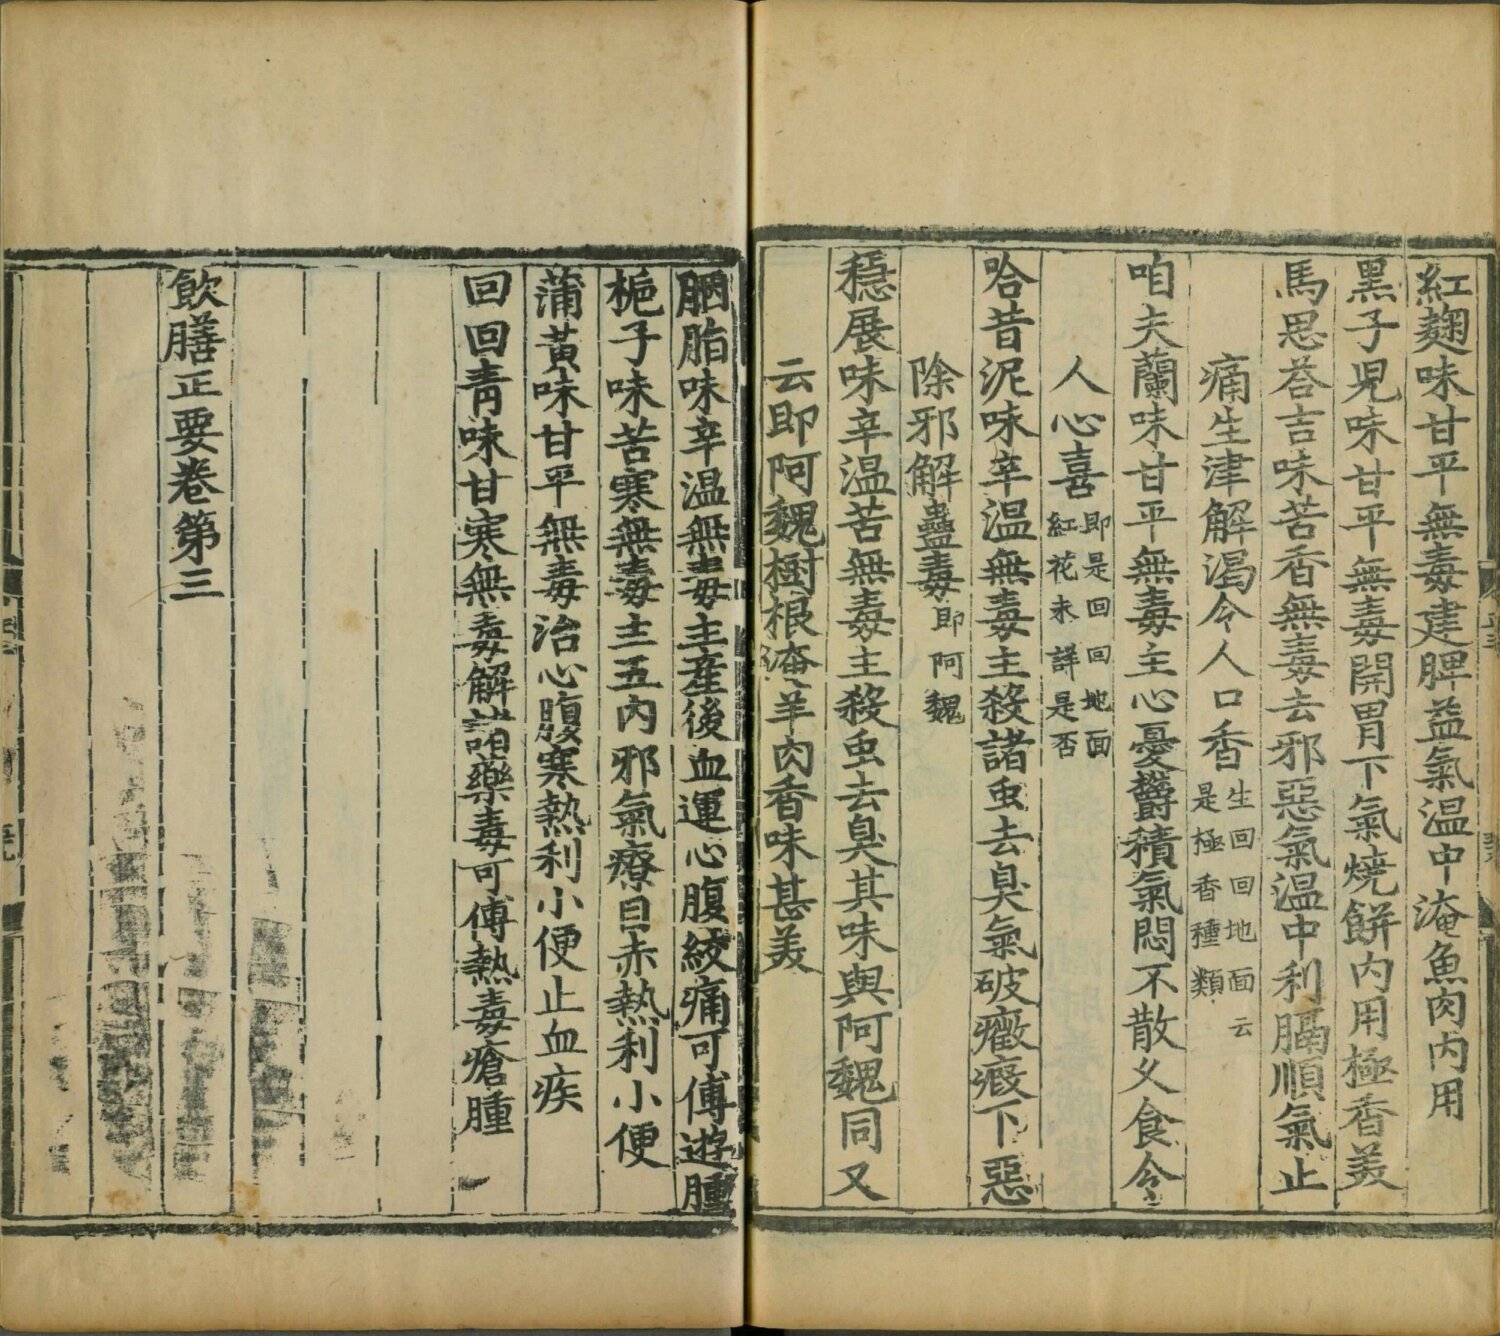 紅麹味甘平無毒建脾益氣温中淹魚肉内用
黑子兒味甘平無毒開胃下氣燒餅内用極香美
馬思荅吉味苦香無毒去邪惡氣温中利膈順氣止
痛生津解渴令人口香生回回地面云
是極香種類
咱夫蘭味甘平無毒主心憂鬱積氣悶不散乆食令
人心喜即是回回地面
紅花未詳是否
哈昔泥味辛温無毒主殺諸虫去臭氣破癥瘕下惡
除邪解蠱毒即阿魏
穩展味辛温苦無毒主殺虫去臭其味與阿魏同又
云即阿魏樹根淹羊肉香味甚美
胭脂味辛温無毒主産後血運心腹絞痛可傅遊腫
梔子味苦寒無毒主五内邪氣療目赤熱利小便
蒲黃味甘平無毒治心腹寒熱利小便止血疾
回回青味甘寒無毒解諸藥毒可傅熱毒瘡腫
飲膳正要卷第三